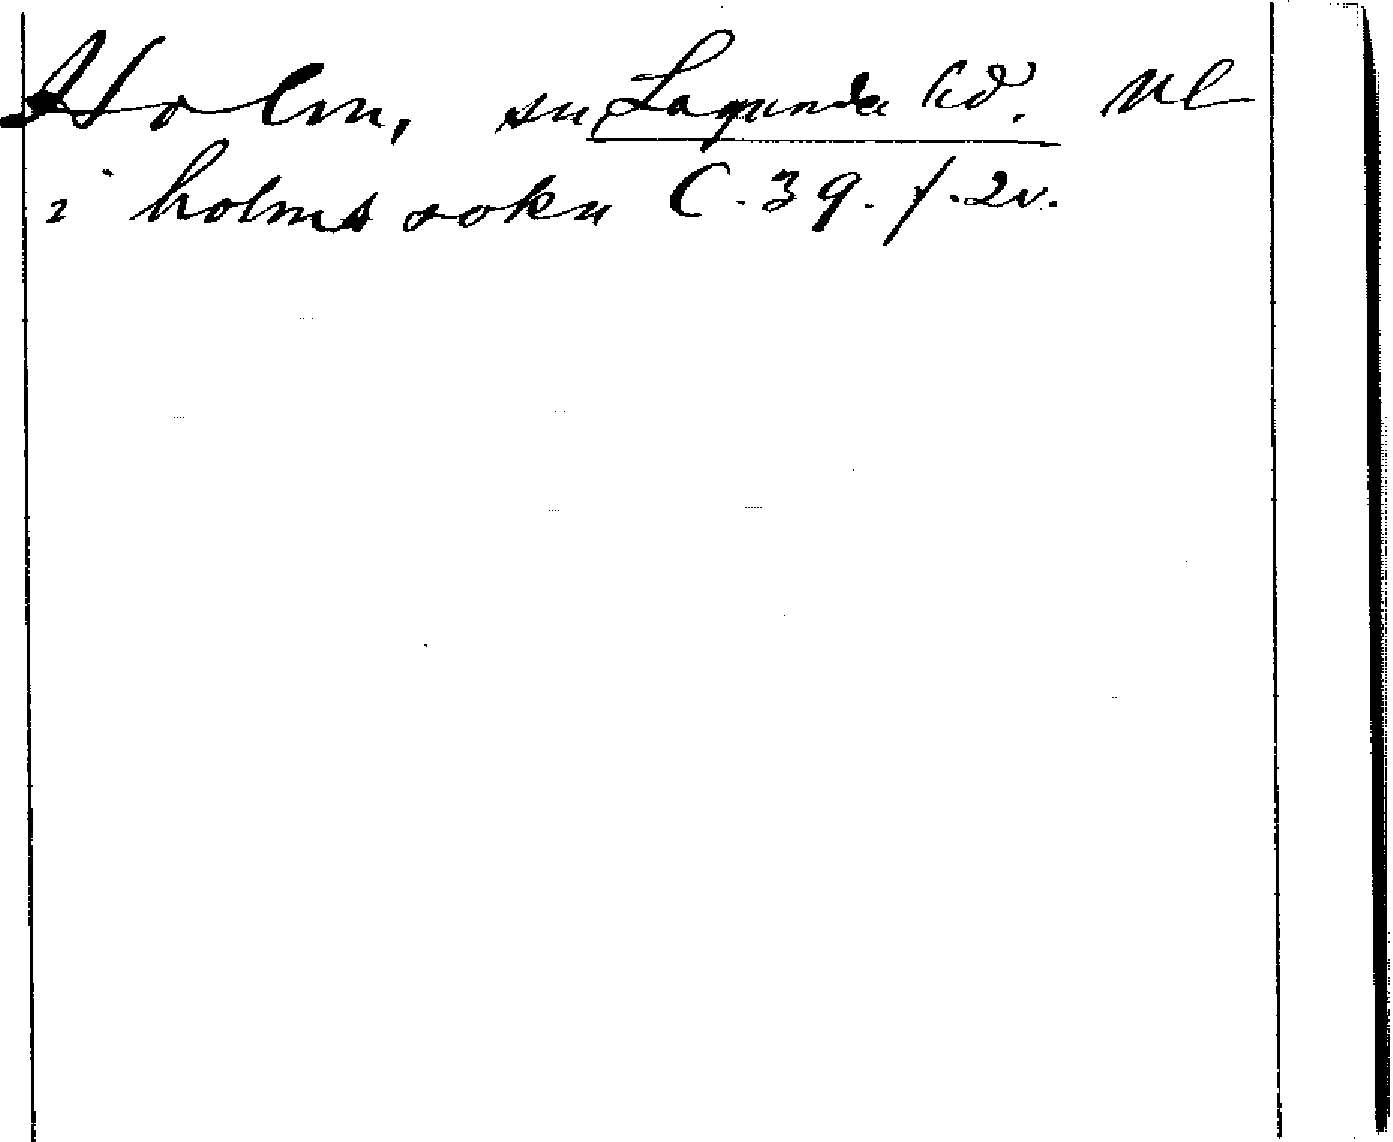 Holm, sn, Lagunda hd. Upl
i holms sokn C. 39. f. 2v.